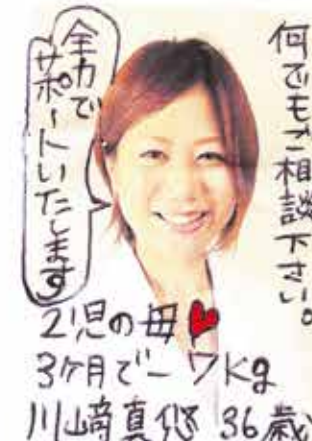 何でもご相談下さい。
全力で
サポートいたします
2児の母
3ヶ月で-7kg
川崎真悠 36歳